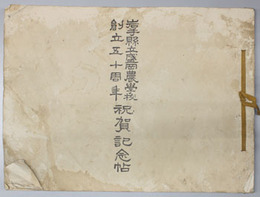 岩手縣立盛岡農學校
創立五十周年祝賀記念帖